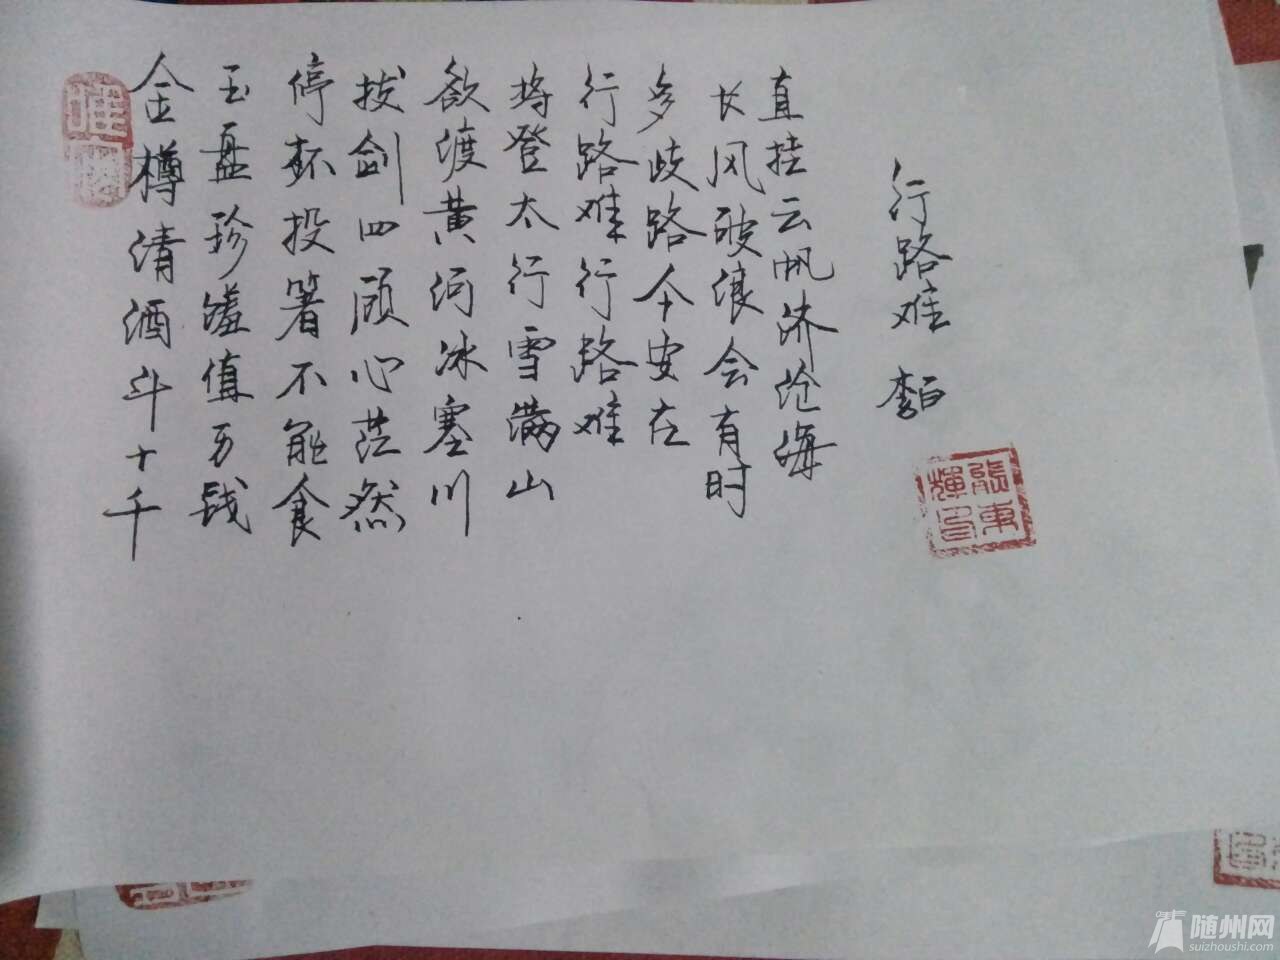 金樽清酒斗十千
玉盘珍羞值万钱
停杯投箸不能食
拔剑四顾心茫然
欲渡黄河冰塞川
将登太行雪满山
行路难行路难
多歧路今安在
长风破浪会有时
直挂云帆济沧海
行路难 李白
張東輝印
随州网
suizhoushi.com